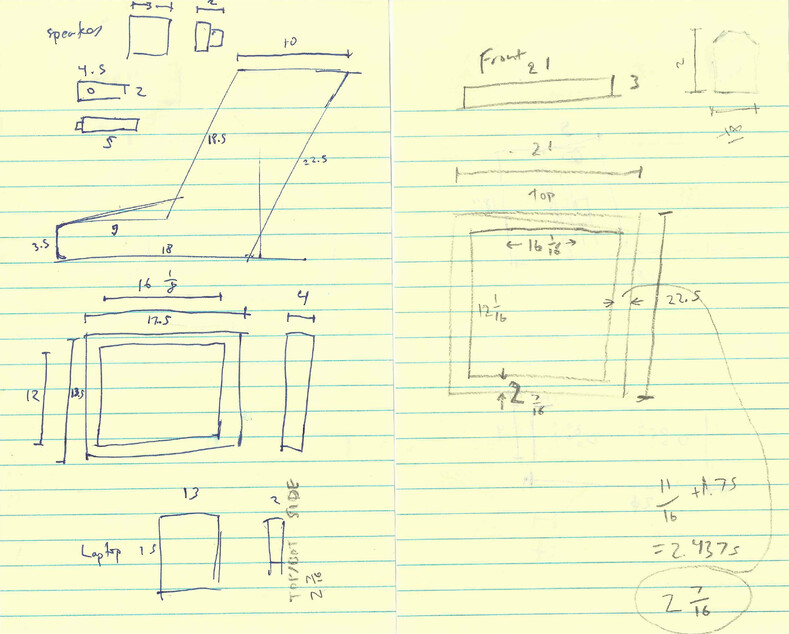 speaker
3
2
4.5
0
2
5
10
18.5
22.5
3.5
9
18
16 1/8
17.5
4
12
13
Laptop
15
2
TOP/BOT SIDE
2 7/16
Front
21
3
21
Top
16 1/16
12 1/16
22.5
2 7/16
11/16 + 1.75
= 2.4375
2 7/16